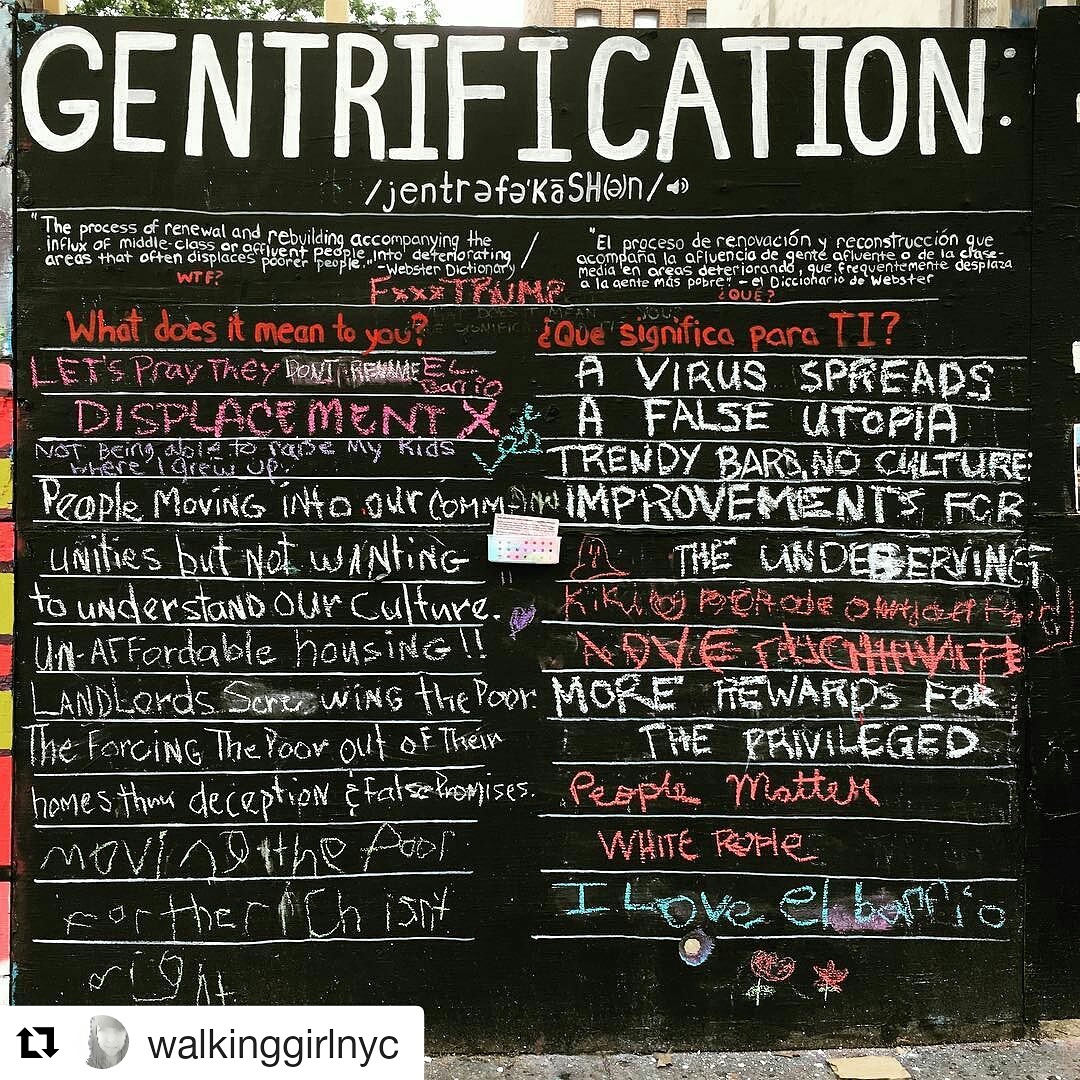 GENTRIFICATION:
/jentrəfəˈkāSH(ə)n/
"The process of renewal and rebuilding accompanying the
influx of middle-class or affluent people into deteriorating
areas that often displaces poorer people." -Webster Dictionary
WTF?
/
"El proceso de renovación y reconstrucción que
acompaña la afluencia de gente afluente o de la clase-
media en areas deteriorando, que frequentemente desplaza
a la gente más pobre" - el Diccionario de Webster
¿QUÉ?
FxxxTRUMP
What does it mean to you?
LET'S Pray They DONT RENAME EL
Barrio
DISPLACEMENT X
NOT Being able to raise My Kids
where I grew up.
People Moving into our Comm-
unities but not wanting
to understand our Culture.
UN-Affordable housing!!
LANDLords Screwing the Poor.
The Forcing The Poor out of Their
homes thru deception & False Promises.
moving the Poor
for the rich isnt
right
¿Que significa para TI?
A VIRUS SPREADS
A FALSE UTOPIA
TRENDY BARS, NO CULTURE
IMPROVEMENTS FOR
THE UNDESERVING
MORE REWARDS FOR
THE PRIVILEGED
People Matter
WHITE PEOPLE
I Love el barrio
walkinggirlnyc